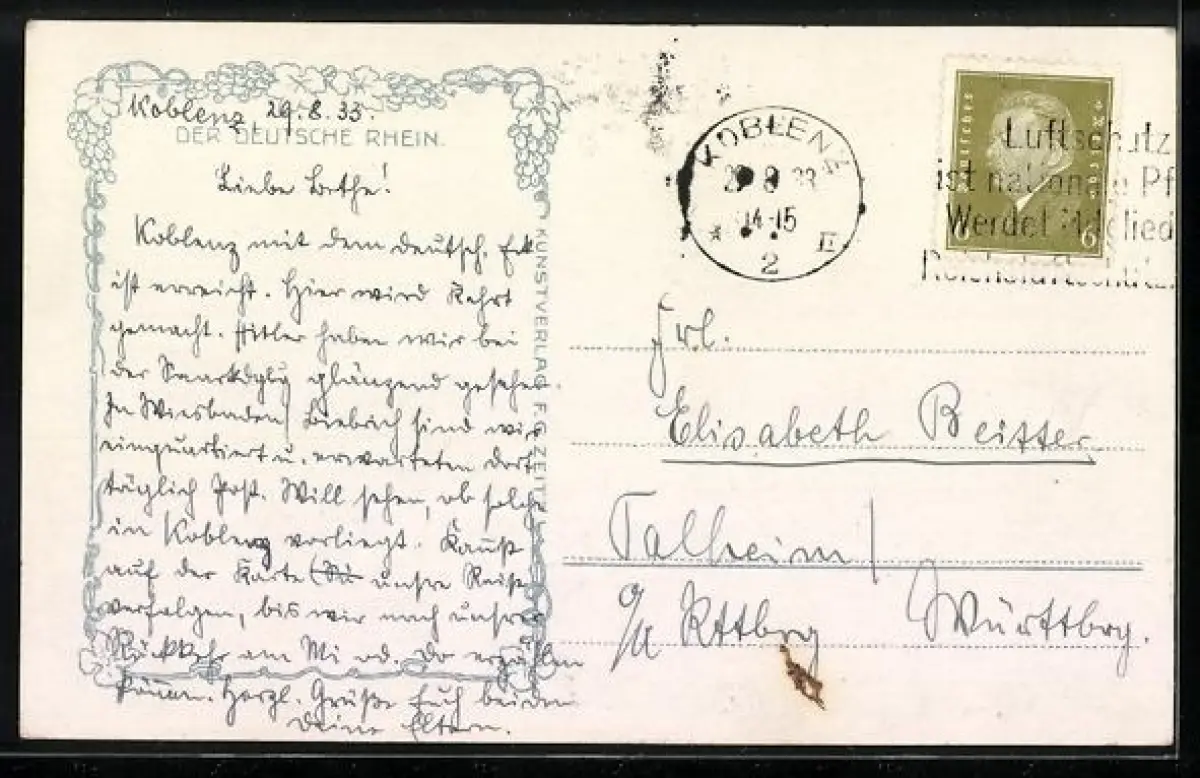 Koblenz, 29.8.33.
DER DEUTSCHE RHEIN.
Liebe Bethe!
Koblenz mit dem deutsch. Eck
ist erreicht. Hier wird Kehrt
gemacht. Hitler haben wir bei
der Saarkdgbg glänzend gesehen.
In Wiesbaden/Biebrich sind wir
einquartiert u. erwarteten dort
täglich Post. Will sehen, ob solche
in Koblenz vorliegt. Kannst
auf der Karte unsre Reise
verfolgen, bis wir nach unsrer
Rückkehr am Mi od. Do erzählen
können. Herzl. Grüße Euch beiden
Deine Eltern.
KUNSTVERLAG F. G. ZEIT
KOBLENZ
29 8 33
14-15
* 2 II
Deutsches Reich
6 6
Luftschutz
ist nationale Pf
Werdet Mitglied
Reichsluftschutz
Frl.
Elisabeth Beitter
Talheim/
O/A Rttbrg Württbrg.